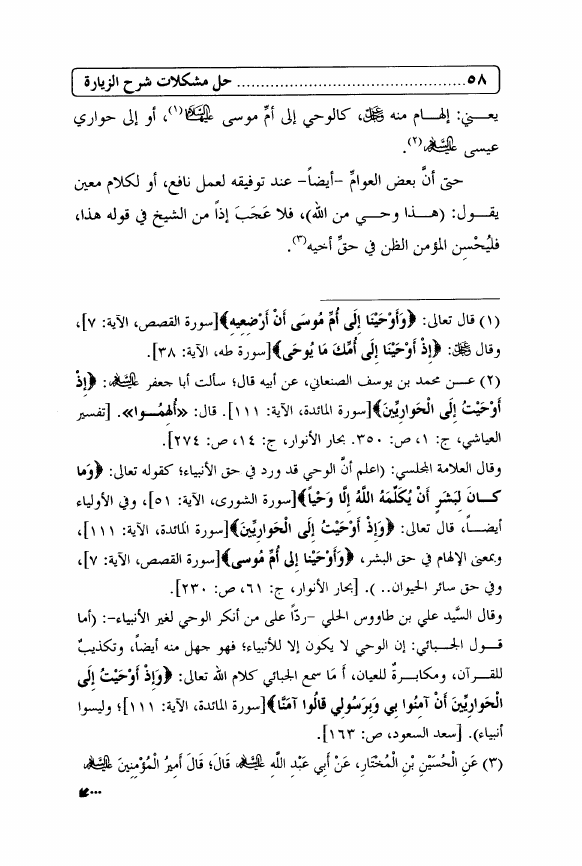 ٥٨ ................................................ حل مشكلات شرح الزيارة
يعـــني: إلهـام منه ﷿، كالوحي إلى أمِّ موسى عليها السلام(١)، أو إلى حواري
عيسى عليه السلام(٢).
حتى أنَّ بعض العوامِّ -أيضاً- عند توفيقه لعمل نافع، أو لكلام معين
يقــول: (هــذا وحــي من الله)، فلا عَجَبَ إذاً من الشيخ في قوله هذا،
فليُحْسِن المؤمن الظن في حقِّ أخيه(٣).
(١) قال تعالى: ﴿وَأَوْحَيْنَا إِلَى أُمِّ مُوسَى أَنْ أَرْضِعِيهِ﴾[سورة القصص، الآية: ٧]،
وقال ﷿: ﴿إِذْ أَوْحَيْنَا إِلَى أُمِّكَ مَا يُوحَى﴾[سورة طه، الآية: ٣٨].
(٢) عـــن محمد بن يوسف الصنعاني، عن أبيه قال؛ سألت أبا جعفر عليه السلام: ﴿إِذْ
أَوْحَيْتُ إِلَى الْحَوَارِيِّينَ﴾[سورة المائدة، الآية: ١١١]. قال: «أُلهِمُــوا». [تفسير
العياشي، ج: ١، ص: ٣٥٠. بحار الأنوار، ج: ١٤، ص: ٢٧٤].
وقال العلامة المجلسي: (اعلم أنَّ الوحي قد ورد في حق الأنبياء؛ كقوله تعالى: ﴿وَمَا
كَــانَ لِبَشَرٍ أَنْ يُكَلِّمَهُ اللَّهُ إِلَّا وَحْياً﴾[سورة الشورى، الآية: ٥١]، وفي الأولياء
أيضـــاً، قال تعالى: ﴿وَإِذْ أَوْحَيْتُ إِلَى الْحَوَارِيِّينَ﴾[سورة المائدة، الآية: ١١١]،
وبمعنى الإلهام في حق البشر، ﴿وَأَوْحَيْنا إِلى أُمِّ مُوسى﴾[سورة القصص، الآية: ٧]،
وفي حق سائر الحيوان.. ). [بحار الأنوار، ج: ٦١، ص: ٢٣٠].
وقال السيَّد علي بن طاووس الحلي -ردّاً على من أنكر الوحي لغير الأنبياء-: (أما
قــول الجــبائي: إن الوحي لا يكون إلا للأنبياء؛ فهو جهل منه أيضاً، وتكذيبٌ
للقــرآن، ومكابــرةٌ للعيان، أَ مَا سمع الجبائي كلام الله تعالى: ﴿وَإِذْ أَوْحَيْتُ إِلَى
الْحَوَارِيِّينَ أَنْ آمِنُوا بِي وَبِرَسُولِي قَالُوا آمَنَّا﴾[سورة المائدة، الآية: ١١١]؛ وليسوا
أنبياء). [سعد السعود، ص: ١٦٣].
(٣) عَنِ الْحُسَيْنِ بْنِ الْمُخْتَارِ، عَنْ أَبِي عَبْدِ اللَّهِ عليه السلام قَالَ؛ قَالَ أَمِيرُ الْمُؤْمِنِينَ عليه السلام
...